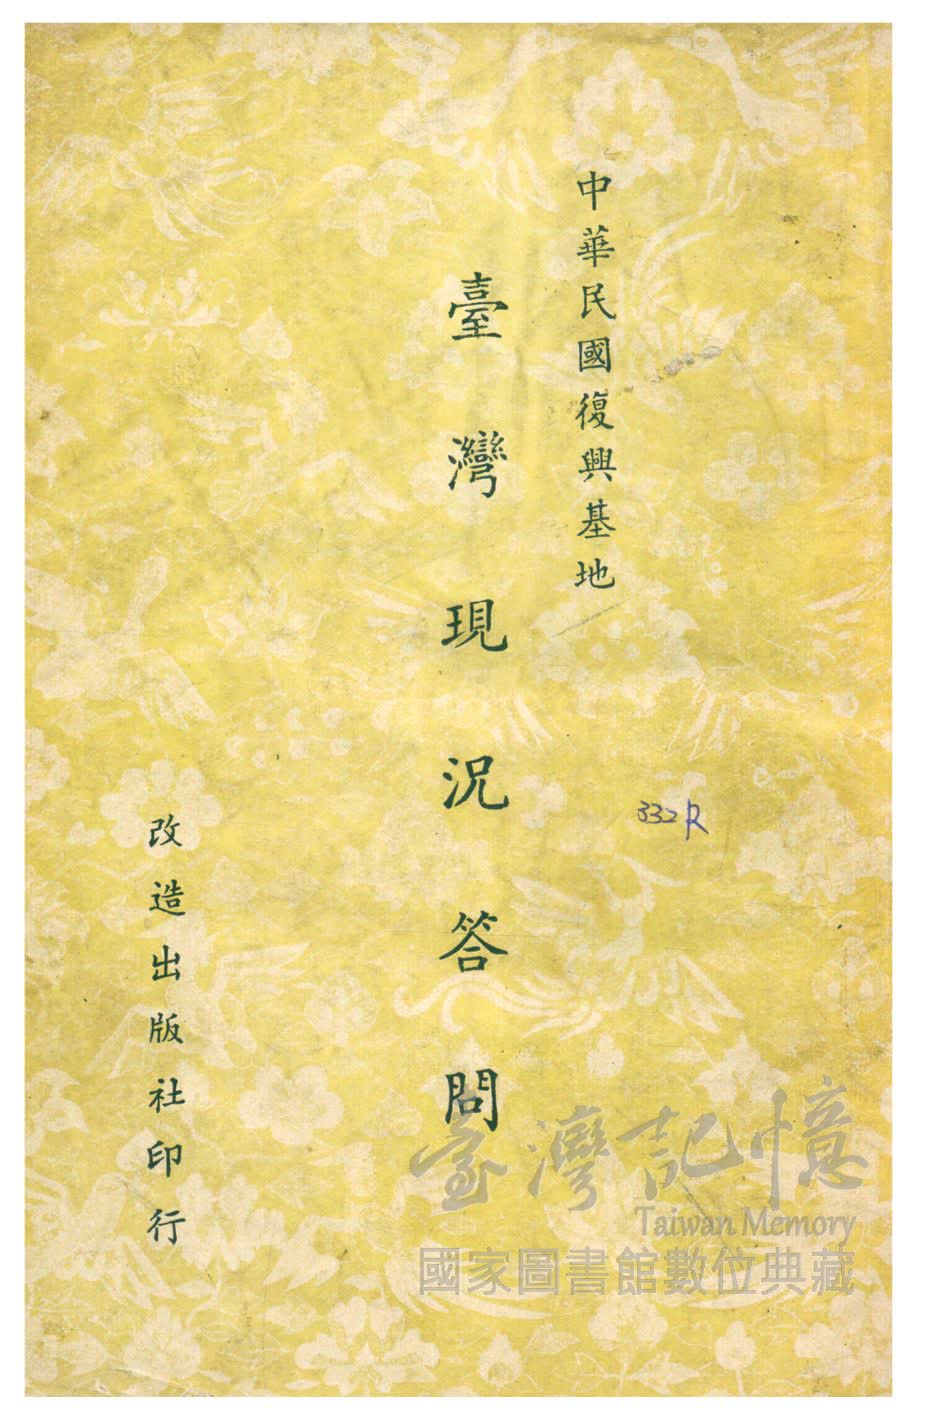 中華民國復興基地
臺灣現況答問
332R
改造出版社印行
臺灣記憶
Taiwan Memory
國家圖書館數位典藏